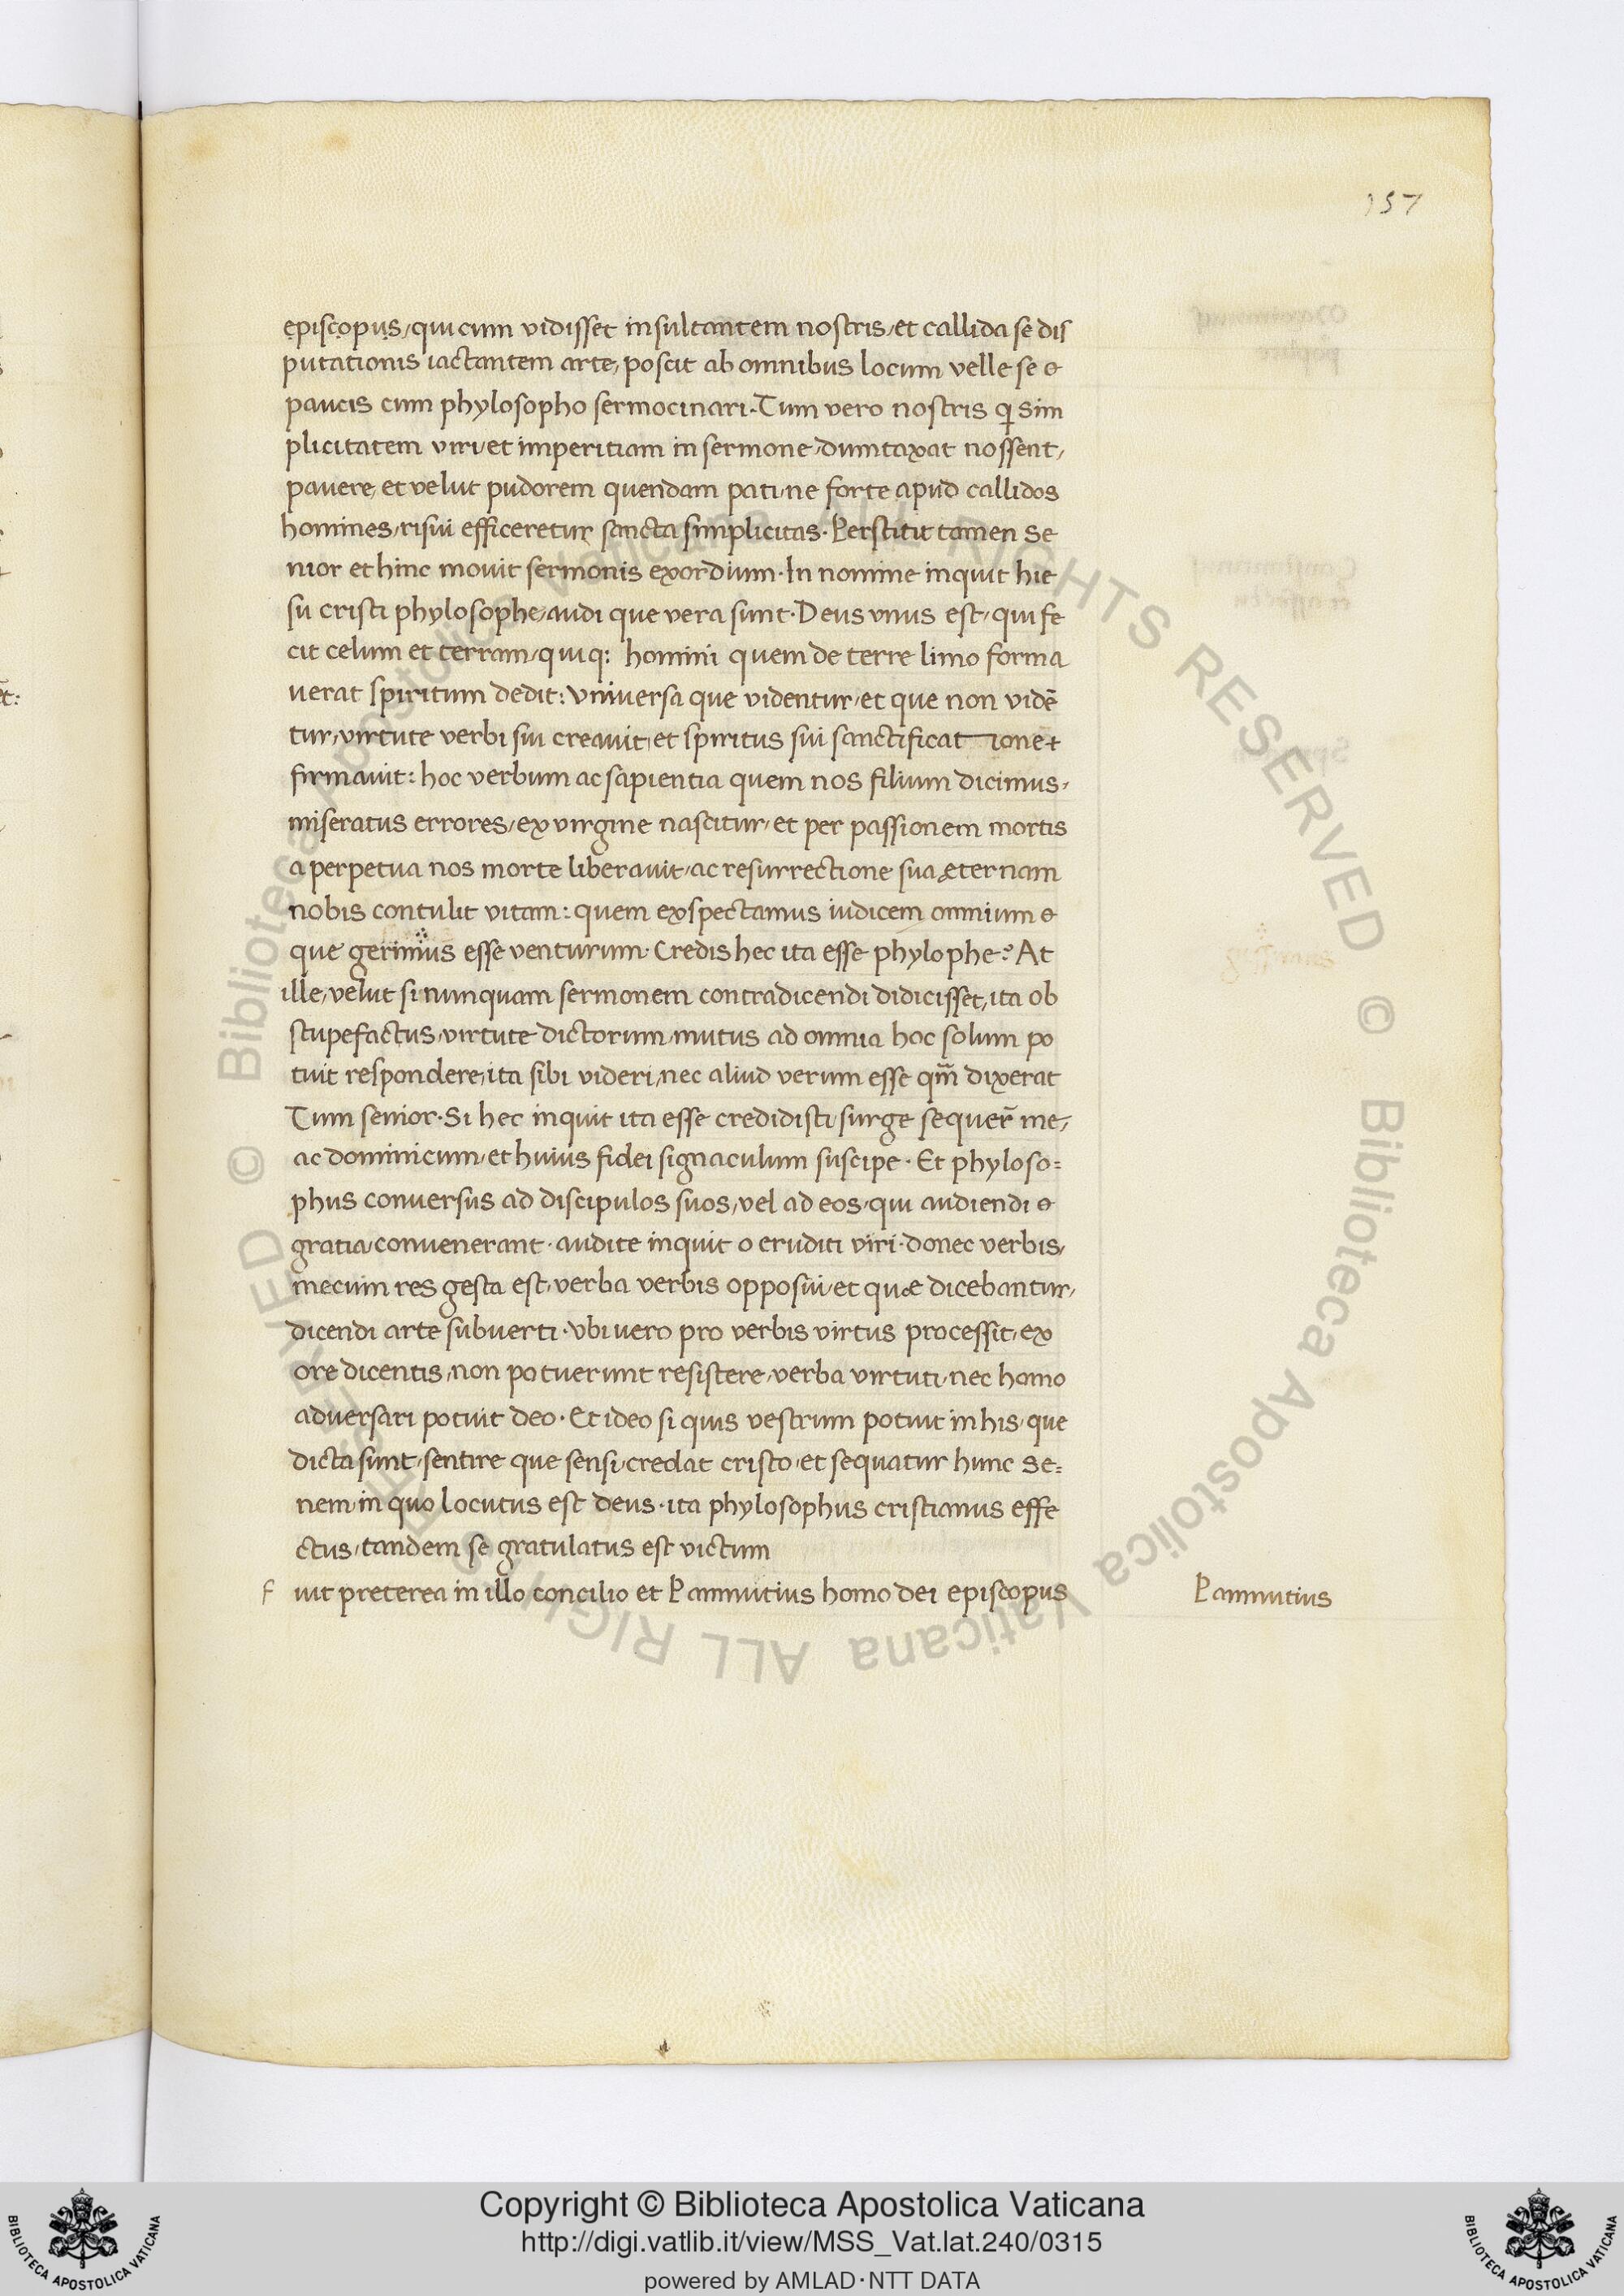 157
episcopus, qui cum vidisset insultantem nostris, et callida se dis
putationis iactantem arte, poscit ab omnibus locum velle se &
paucis cum phylosopho sermocinari. Tum vero nostris q̨ sim
plicitatem viri et imperitiam in sermone dumtaxat nossent,
pavere, et velut pudorem quendam pati, ne forte apud callidos
homines, risui efficeretur sancta simplicitas. Perstitit tamen se
nior et hinc movit sermonis exordium. In nomine inquit hie
su cristi phylosophe, audi que vera sunt. Deus vnus est, qui fe
cit celum et terram, quiq: homini quem de terre limo forma
uerat spiritum dedit: vniversa que videntur, et que non vidē
tur, virtute verbi sui creavit, et spiritus sui sanctificatione &
firmauit: hoc verbum ac sapientia quem nos filium dicimus,
miseratus errores, ex virgine nascitur, et per passionem mortis
a perpetua nos morte liberauit, ac resurrectione sua ęternam
nobis contulit vitam: quem exspectamus iudicem omnium &
que gerimus esse venturum. Credis hec ita esse phylophe? At
ille, velut si nunquam sermonem contradicendi didicisset, ita ob
stupefactus, virtute dictorum, mutus ad omnia hoc solum po
tuit respondere, ita sibi videri, nec aliud verum esse qm̄ dixerat
Tum senior. Si hec inquit ita esse credidisti, surge sequer̄ me,
ac dominicum, et huius fidei signaculum suscipe. Et phyloso=
phus conversus ad discipulos suos, vel ad eos, qui audiendi &
gratia convenerant. audite inquit o eruditi viri. donec verbis,
mecum res gesta est, verba verbis opposui, et quæ dicebantur,
dicendi arte subverti. vbi uero pro verbis virtus processit, ex
ore dicentis, non potuerunt resistere, verba virtuti, nec homo
adversari potuit deo. Et ideo si quis vestrum potuit in his, que
dicta sunt, sentire que sensi, credat cristo, et sequatur hunc se=
nem, in quo locutus est deus. ita phylosophus cristianus effe
ctus, tandem se gratulatus est victum
f uit preterea in illo concilio et Pannutius homo dei episcopus
Pannutius
© Biblioteca Apostolica Vaticana ALL RIGHTS RESERVED © Biblioteca Apostolica Vaticana ALL RIGHTS RESERVED
Copyright © Biblioteca Apostolica Vaticana
http://digi.vatlib.it/view/MSS_Vat.lat.240/0315
powered by AMLAD·NTT DATA
BIBLIOTECA APOSTOLICA VATICANA
BIBLIOTECA APOSTOLICA VATICANA